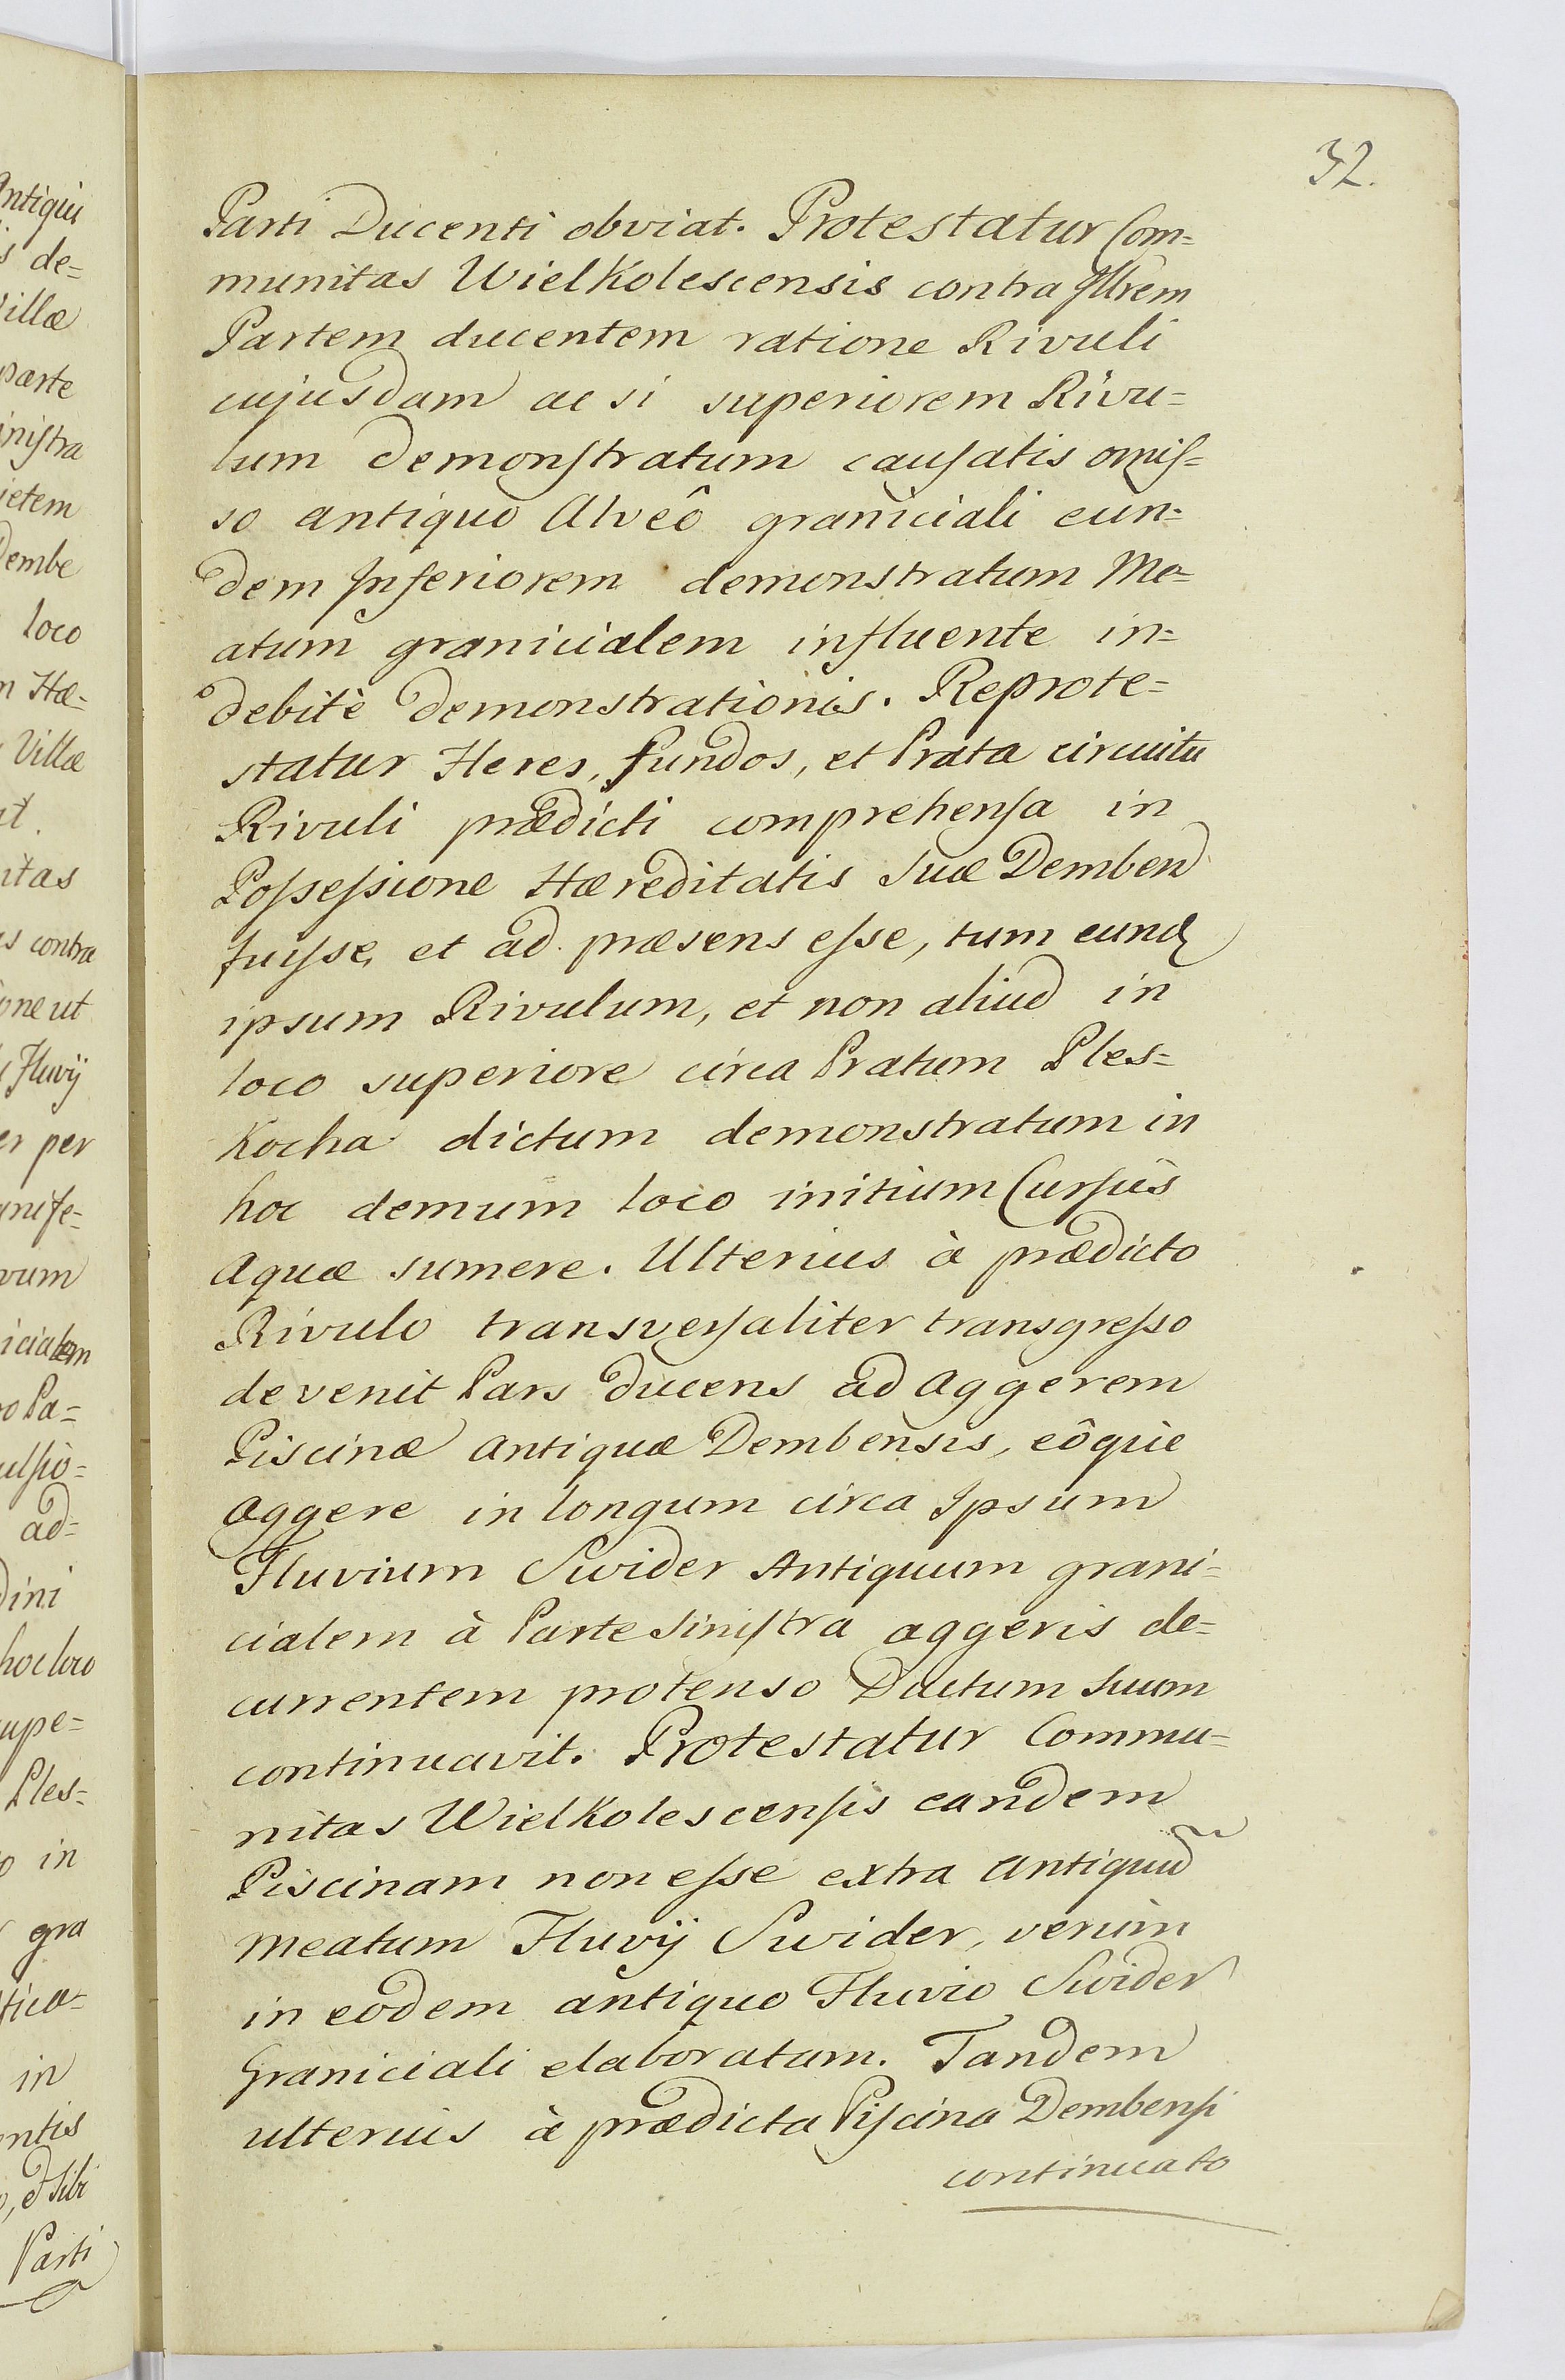 32.
Parti Ducenti obviat. Protestatur Com=
munitas Wielkolescensis contra Illrem
Partem ducentem ratione Rivuli
cujusdam ac si superiorem Rivu=
lum demonstratum causatis omis=
so antiquo Alveô graniciali eun=
dem Inferiorem demonstratum Me=
atum granicialem influente in=
debitè demonstrationis. Reprote=
statur Heres, fundos, et Prata circuitu
Rivuli prædicti comprehensa in
Possessione Hæreditatis Suæ Demben
fuisse, et ad præsens esse, tum eund
ipsum Rivulum, et non aliud in
loco superiore circa Pratum Ples=
kocha dictum demonstratum in
hoc demum loco initium Cursûs
Aquæ sumere. Ulterius à prædicto
Rivulo transversaliter transgresso
devenit Pars ducens ad Aggerem
Piscinæ Antiquæ Dembensis, eôque
Aggere in longum circa Ipsum
Fluvium Swider Antiquum grani=
cialem à Parte Sinistra aggeris de=
currentem protenso Ductum Suum
continuavit. Protestatur Commu=
nitas Wielkolescensis eandem
Piscinam non esse extra Antiquũ
meatum Fluvij Swider, verùm
in eodem antiquo Fluvio Swider
Graniciali elaboratam. Tandem
ulterius à prædicta Piscina Dembensi
continuato
Antiqui
s de=
Villæ
parte
inistra
ietem
Dembe
loco
m Hæ=
Villæ
at.
itas
s contra
one ut
Fluvij
er per
nife=
vum
icialem
o Pa=
ulsio=
ad=
dini
hoc loco
supe=
Ples=
o in
gra
tica=
in
entis
o, et sibi
Parti